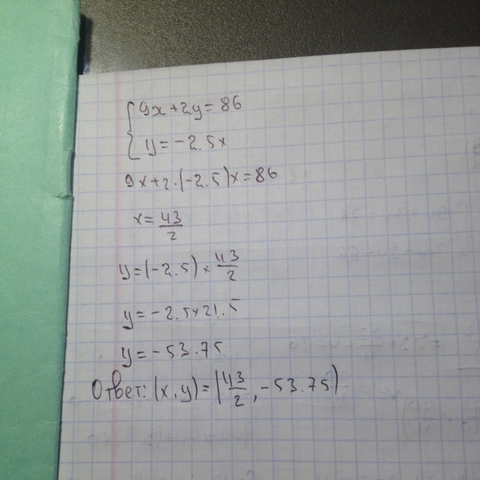 {9x+2y=86
y=-2.5x
9x+2·(-2.5)x=86
x=43/2
y=(-2.5)×43/2
y=-2.5×21.5
y=-53.75
Ответ: (x,y)=(43/2,-53.75)